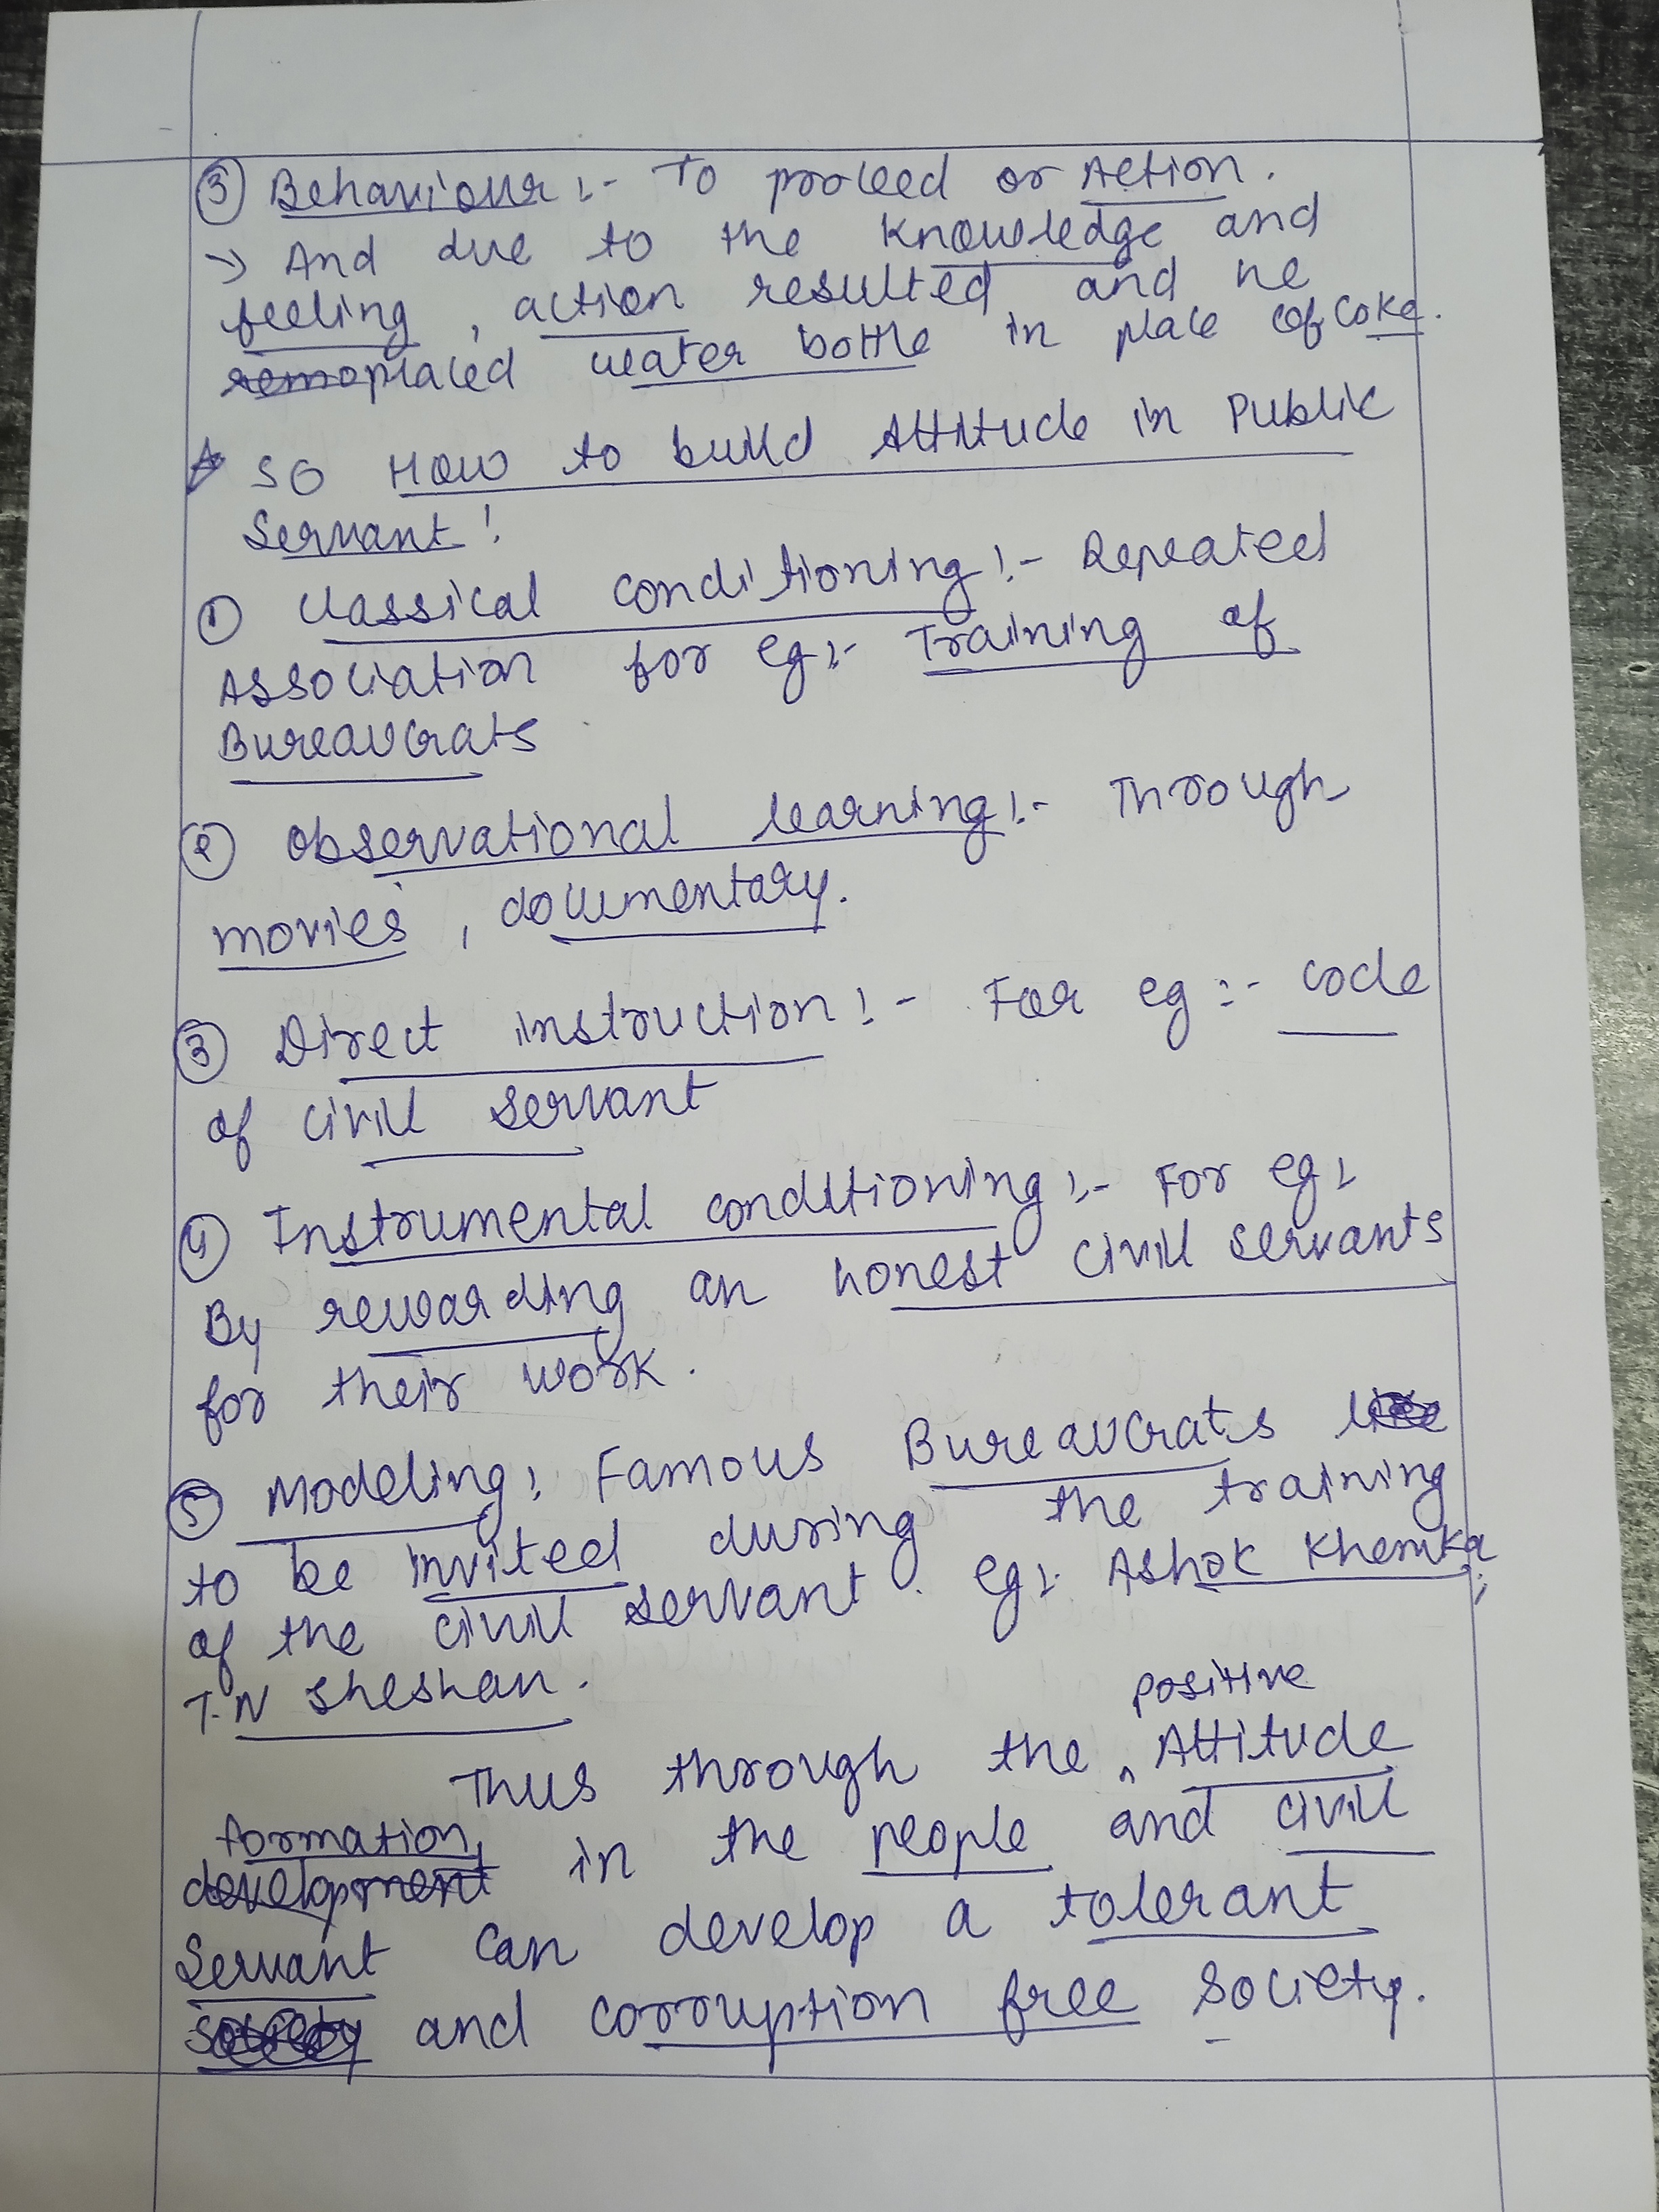 ③ Behaviour :- To proceed or Action.
→ And due to the knowledge and
feeling, action resulted and he
placed water bottle in place of Coke.
☆ SO How to build Attitude in Public
Servant !
① Classical conditioning :- Repeated
Association for eg :- Training of
Bureaucrats
② Observational learning :- Through
movies, documentary.
③ Direct instruction :- For eg :- code
of civil servant
④ Instrumental conditioning :- For eg :
By rewarding an honest civil servants
for their work.
⑤ Modeling : Famous Bureaucrats
to be invited during the training
of the civil servant. eg :- Ashok Khemka,
T.N Sheshan.
Thus through the positive Attitude
formation in the people and civil
Servant can develop a tolerant
and corruption free society.